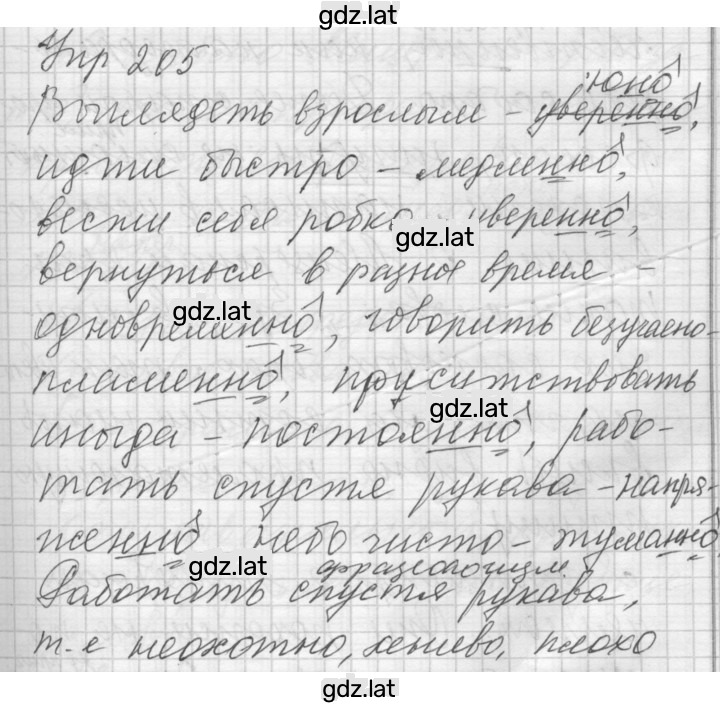 gdz.lat
Упр 205
юно
Выглядеть взрослым - уверенно,
идти быстро - медленно,
вести себя робко уверенно,
gdz.lat
вернуться в разное время -
gdz.lat
одновременно, говорить безучасно-
пламенно, пруситствовать
gdz.lat
иногда - постоянно, рабо-
тать спустя рукава - напря-
женно небо чисто - туманно
gdz.lat
фразеологизм
Работать спустя рукава,
т.е неохотно, лениво, плохо
gdz.lat